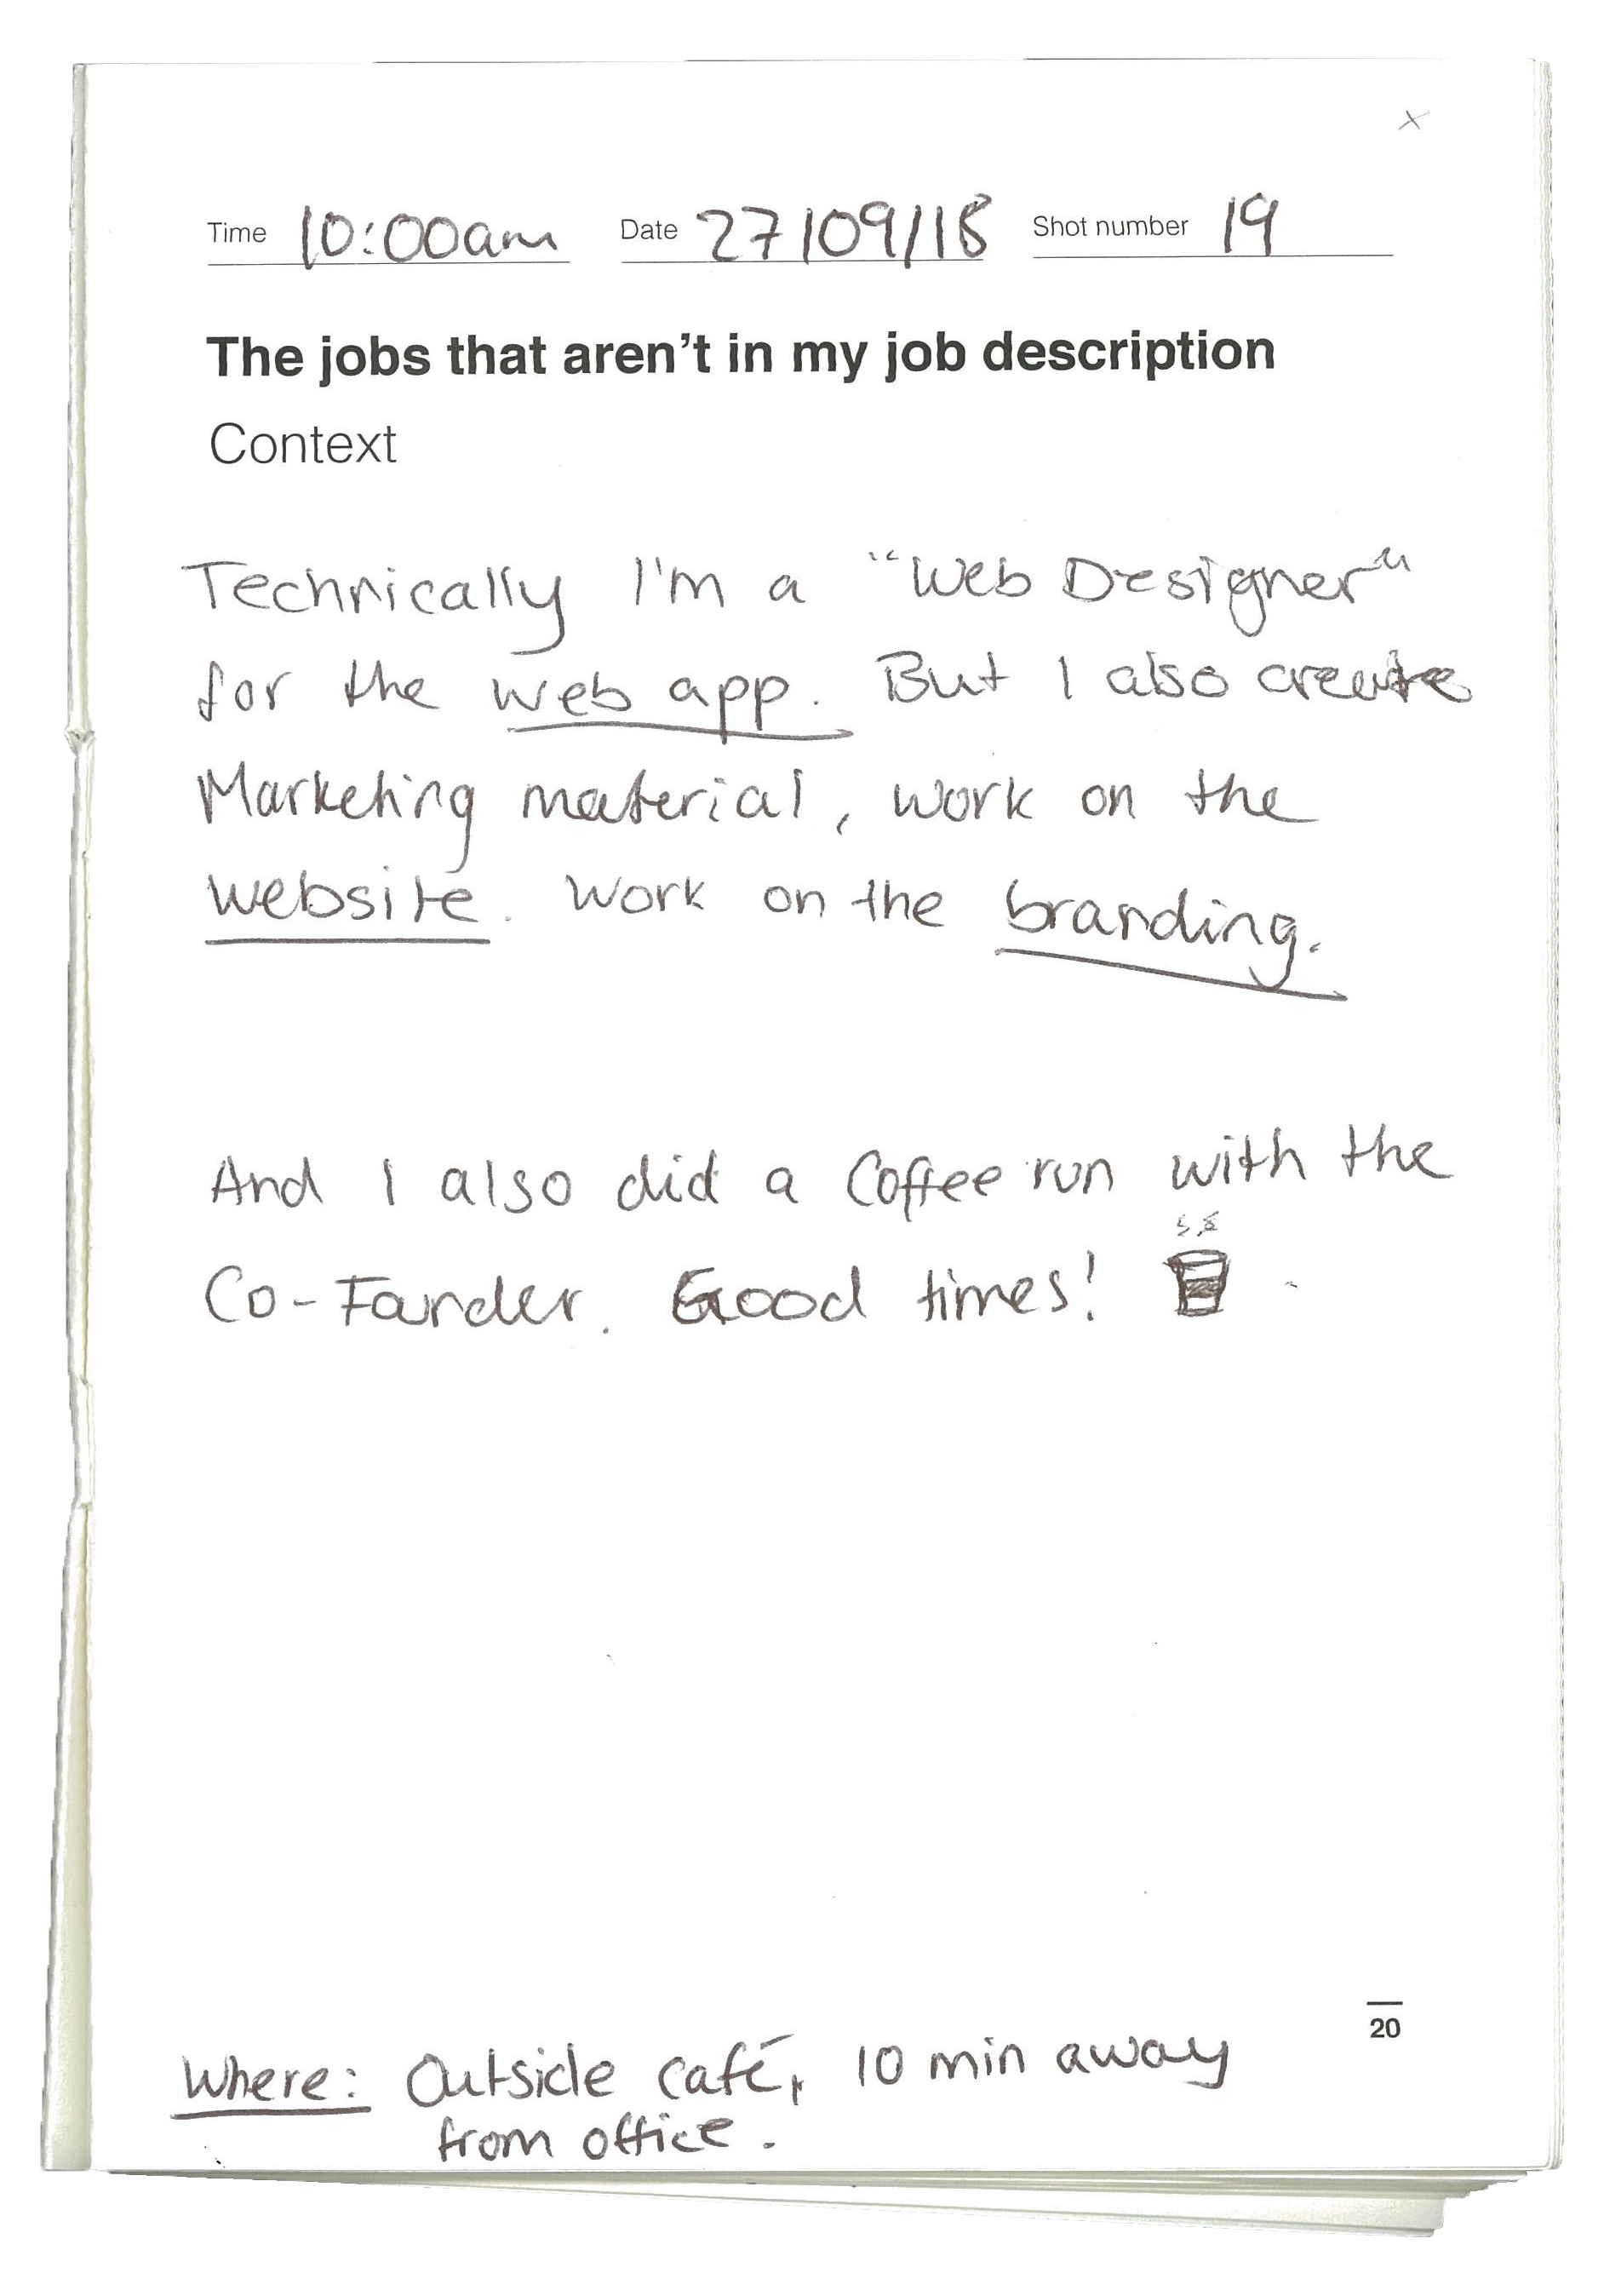 Time 10:00am Date 27/09/18 Shot number 19
The jobs that aren't in my job description
Context
Technically I'm a "Web Designer"
for the web app. But I also create
Marketing material, work on the
website. Work on the branding.
And I also did a Coffee run with the
Co-Founder. Good times!
20
Where: Outside café, 10 min away
from office.